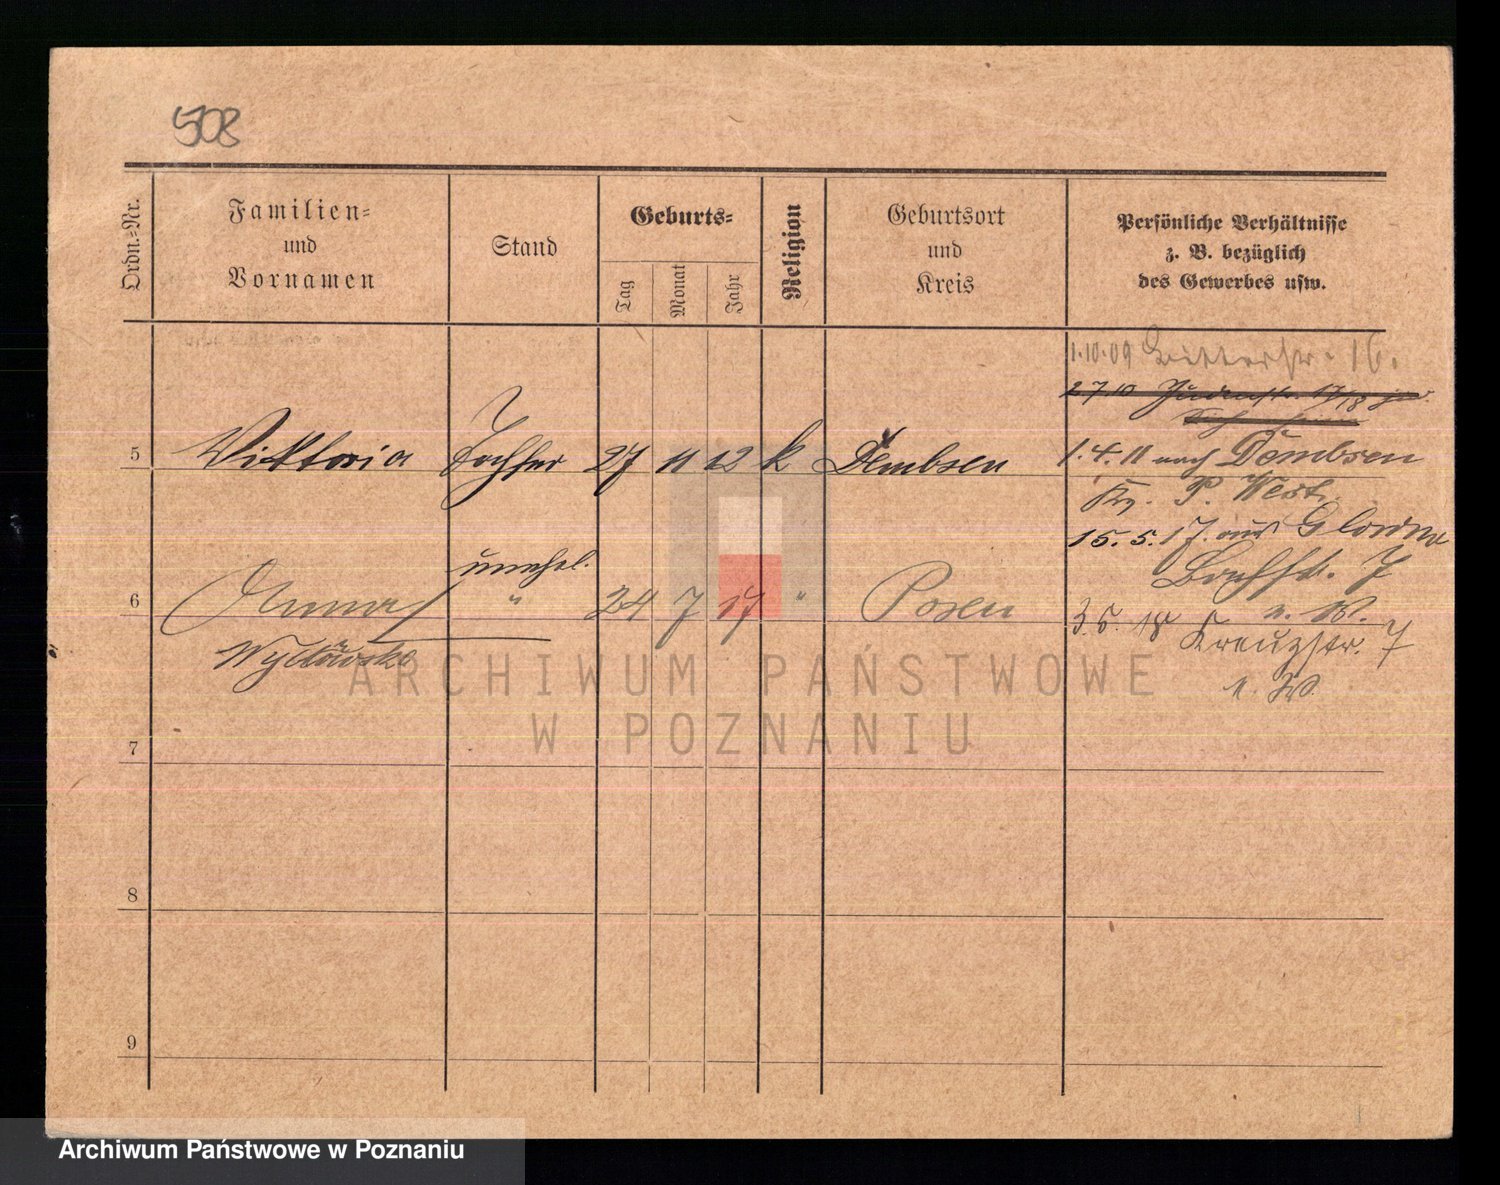 508
Ordn.-Nr.
Familien-
und
Vornamen
Stand
Geburts-
Tag
Monat
Jahr
Religion
Geburtsort
und
Kreis
Persönliche Verhältnisse
z. B. bezüglich
des Gewerbes usw.
1.10.09 Ritterstr. 16.
2.7.10 17/18
5 Viktoria Tochter 27 11 12 k Dembsen
1.4.11 nach Dembsen
Kr. P. West.
15.5.17. aus Glowno
7
unehel.
6 Anna " 24 7 17 " Posen
n. W.
3.5.18 Kreuzstr. 7
n. W.
ARCHIWUM PAŃSTWOWE
W POZNANIU
7
8
9
Archiwum Państwowe w Poznaniu